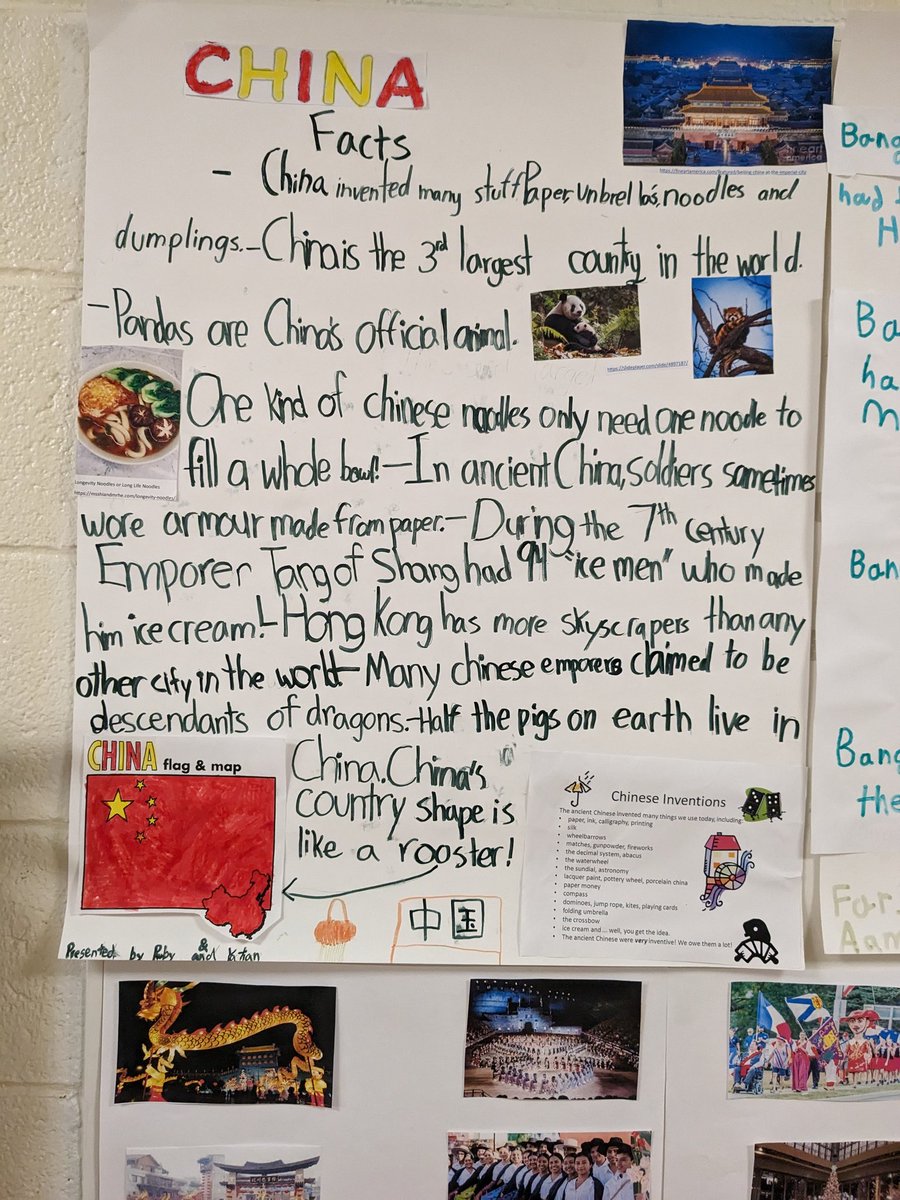 CHINA
Facts
- China invented many stuff Paper, Unbrella's, noodles and
dumplings. - China is the 3rd largest country in the world.
- Pandas are China's official animal.
One kind of chinese noodles only need one noodle to
fill a whole bowl! - In ancient China, soldiers sometimes
wore armour made from paper. - During the 7th century
Emporer Tang of Shang had 94 "ice men" who made
him ice cream! - Hong Kong has more skyscrapers than any
other city in the world - Many chinese emporers claimed to be
descendants of dragons. - Half the pigs on earth live in
China. China's
country shape is
like a rooster!
https://fineartamerica.com/featured/beijing-china-at-the-imperial-city
https://slideplayer.com/slide/4897187/
Longevity Noodles or Long Life Noodles
https://msshiandmrhe.com/longevity-noodles/
CHINA flag & map
中国
Chinese Inventions
The ancient Chinese invented many things we use today, including:
• paper, ink, calligraphy, printing
• silk
• wheelbarrows
• matches, gunpowder, fireworks
• the decimal system, abacus
• the waterwheel
• the sundial, astronomy
• lacquer paint, pottery wheel, porcelain china
• paper money
• compass
• dominoes, jump rope, kites, playing cards
• folding umbrella
• the crossbow
• ice cream and ... well, you get the idea.
• The ancient Chinese were very inventive! We owe them a lot!
Presented by Ruby & and
Bang
had
H
Ba
ha
M
Ban
Bang
the
Far
Aam